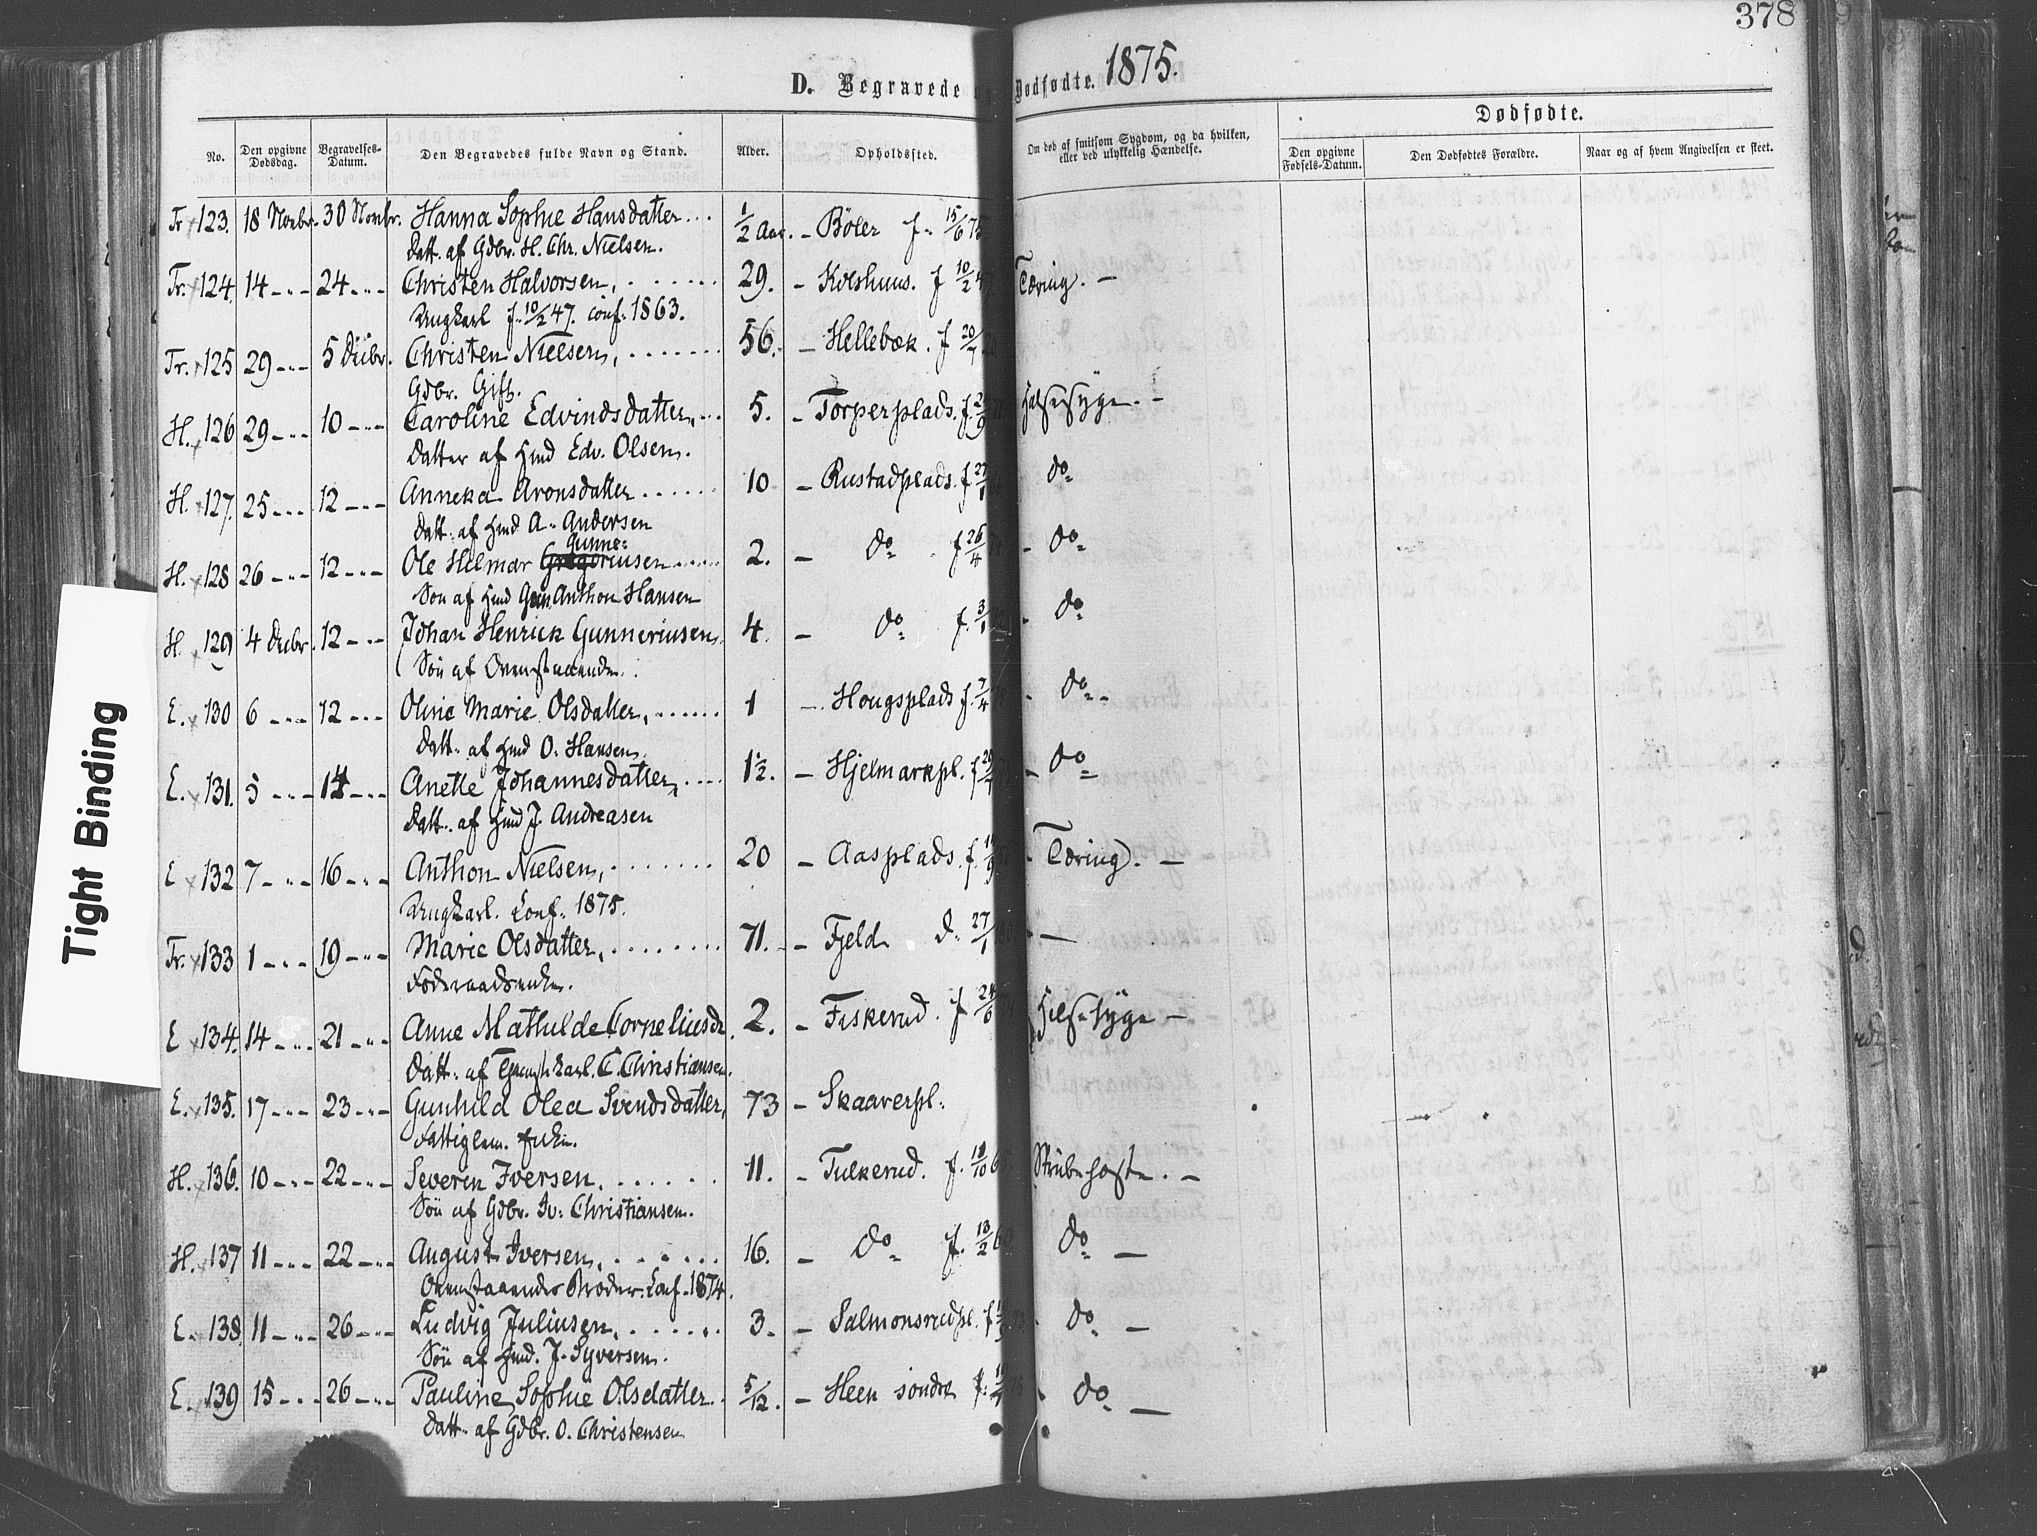 378
D. Begravede og Dødfødte. 1875.
No.
Den opgivne Dødsdag.
Begravelses-Datum.
Den Begravedes fulde Navn og Stand.
Alder.
Opholdssted.
Om død af smitsom Sygdom, og da hvilken, eller ved ulykkelig Hændelse.
Dødfødte.
Den opgivne Fødsels-Datum.
Den Dødfødtes Forældre.
Naar og af hvem Angivelsen er skeet.
Fr 123. 18 Novbr. 30 Novbr. Hanna Sophie Hansdatter... 1/2 Aar. - Böler f. 15/6 75
Datt. af Gdbr. H. Chr. Nielsen.
Fr. 124 14 -"- 24 -"- Christen Halvorsen, 29. - Kolshuus. f 10/2 Tæring. -
Ungkarl f. 10/2 47. conf. 1863.
Fr. 125 29 -"- 5 Decbr. Christen Nielsen, 56. - Hellebæk. f 20/
Gdbr. Gift.
H. 126 29 -"- 10 -"- Caroline Edvindsdatter, ... 5. - Torperplads. f. Halssyge. -
Datter af Hmd Edv. Olsen.
H. 127. 25 -"- 12 -"- Anneka Aronsdatter ... 10 - Rustadplads. f 27/1 do
Datt. af Hmd A. Andersen
Gunne-
H. 128 26 -"- 12 -"- Ole Helmar riusen ... 2. - do f 26/4 - do
Søn af Hmd Anthon Hansen
H. 129 4 Decbr. 12 -"- Johan Henrick Gunneriusen, 4. - do f. 3/1 - do
Søn af Ovenstaaende.
E. 130 6 -"- 12 -"- Oline Marie Olsdatter, ... 1 - Hougsplads f. 7/4 - do -
Datt. af Hmd O. Hansen
E. 131. 5 -"- 14 -"- Anette Johannesdatter, ... 1 1/2. - Hjelmarkpl. f - do
Datt. af Hmd J. Andreasen
E 132 7 -"- 16 -"- Anthon Nielsen, ... 20 - Aasplads. f. - Tæring. -
Ungkarl. Conf. 1875.
Fr. 133 1 -"- 19 -"- Marie Olsdatter, ... 71. - Fjeld D. 27/1 -
Föderaadsenke.
E 134. 14 -"- 21 -"- Anne Mathilde Corneliusdr. 2. - Fiskerud. f 24/6 Halssyge -
Datt. af C. Christiansen.
E. 135. 17 -"- 23 -"- Gunhild Olea Svendsdatter, 73 - Skaarerpl.
Fattiglem. Enke.
H. 136. 10 -"- 22 -"- Severin Iversen, ... 11. - Tulkerud. f. 18/10 6 Strubehoste. -
Søn af Gdbr. Iv: Christiansen.
H. 137 11 -"- 22 -"- August Iversen, ... 16. - do f. 13/2 6 do -
Ovenstaaendes Broder. Conf. 1874.
E. 138. 11 -"- 26 -"- Ludvig Juliusen, ... 3. - Salmonsrudpl. f do -
Søn af Hmd. J. Syversen.
E. 139 15 -"- 26 -"- Pauline Sophie Olsdatter. 5/12. - Heen söndre f. do -
Datt. af Gdbr. O. Christensen
Tight Binding